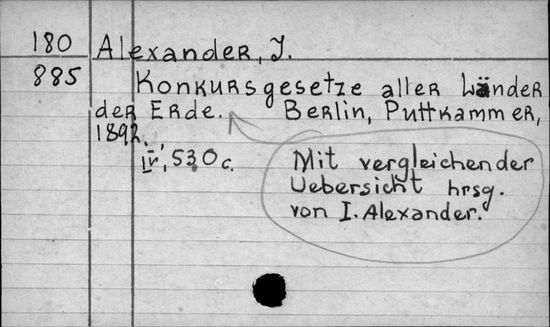 180 Alexander, J.
885 Konkursgesetze aller Länder
der Erde. Berlin, Puttkammer,
1892.
IV, 530 c.
Mit vergleichender
Uebersicht hrsg.
von I. Alexander.